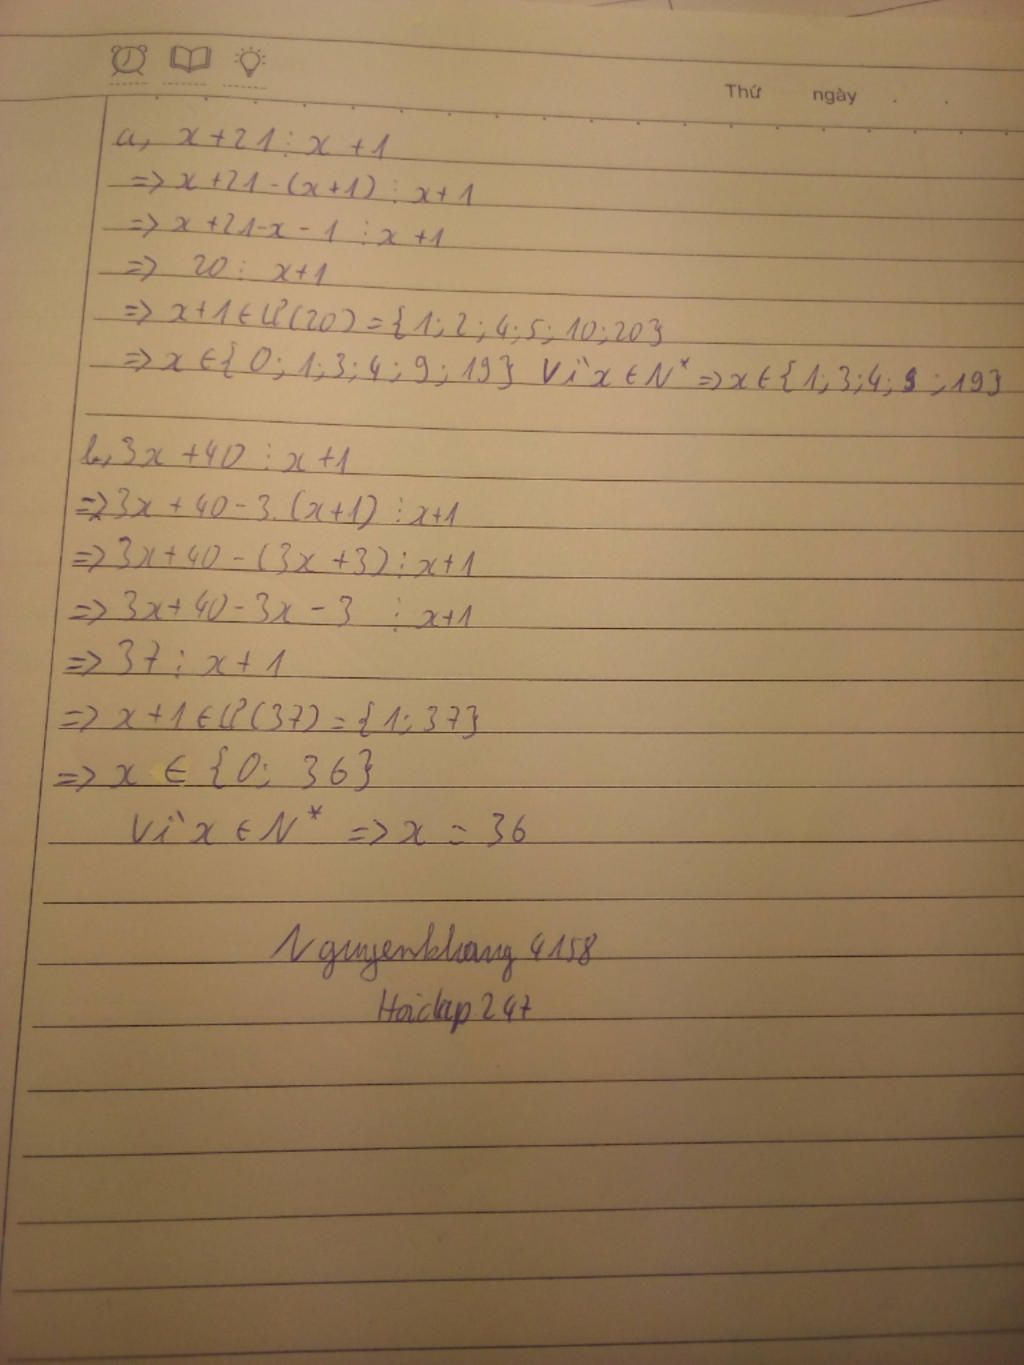 Thứ ngày . .
a, x+21 ⋮ x+1
=> x+21-(x+1) ⋮ x+1
=> x+21-x-1 ⋮ x+1
=> 20 ⋮ x+1
=> x+1 ∈ Ư(20) = {1; 2; 4; 5; 10; 20}
=> x ∈ {0; 1; 3; 4; 9; 19} Vì x ∈ N* => x ∈ {1; 3; 4; 9; 19}
b, 3x+40 ⋮ x+1
=> 3x+40-3.(x+1) ⋮ x+1
=> 3x+40-(3x+3) ⋮ x+1
=> 3x+40-3x-3 ⋮ x+1
=> 37 ⋮ x+1
=> x+1 ∈ Ư(37) = {1; 37}
=> x ∈ {0; 36}
Vì x ∈ N* => x = 36
Nguyenkhang4158
Hoidap247